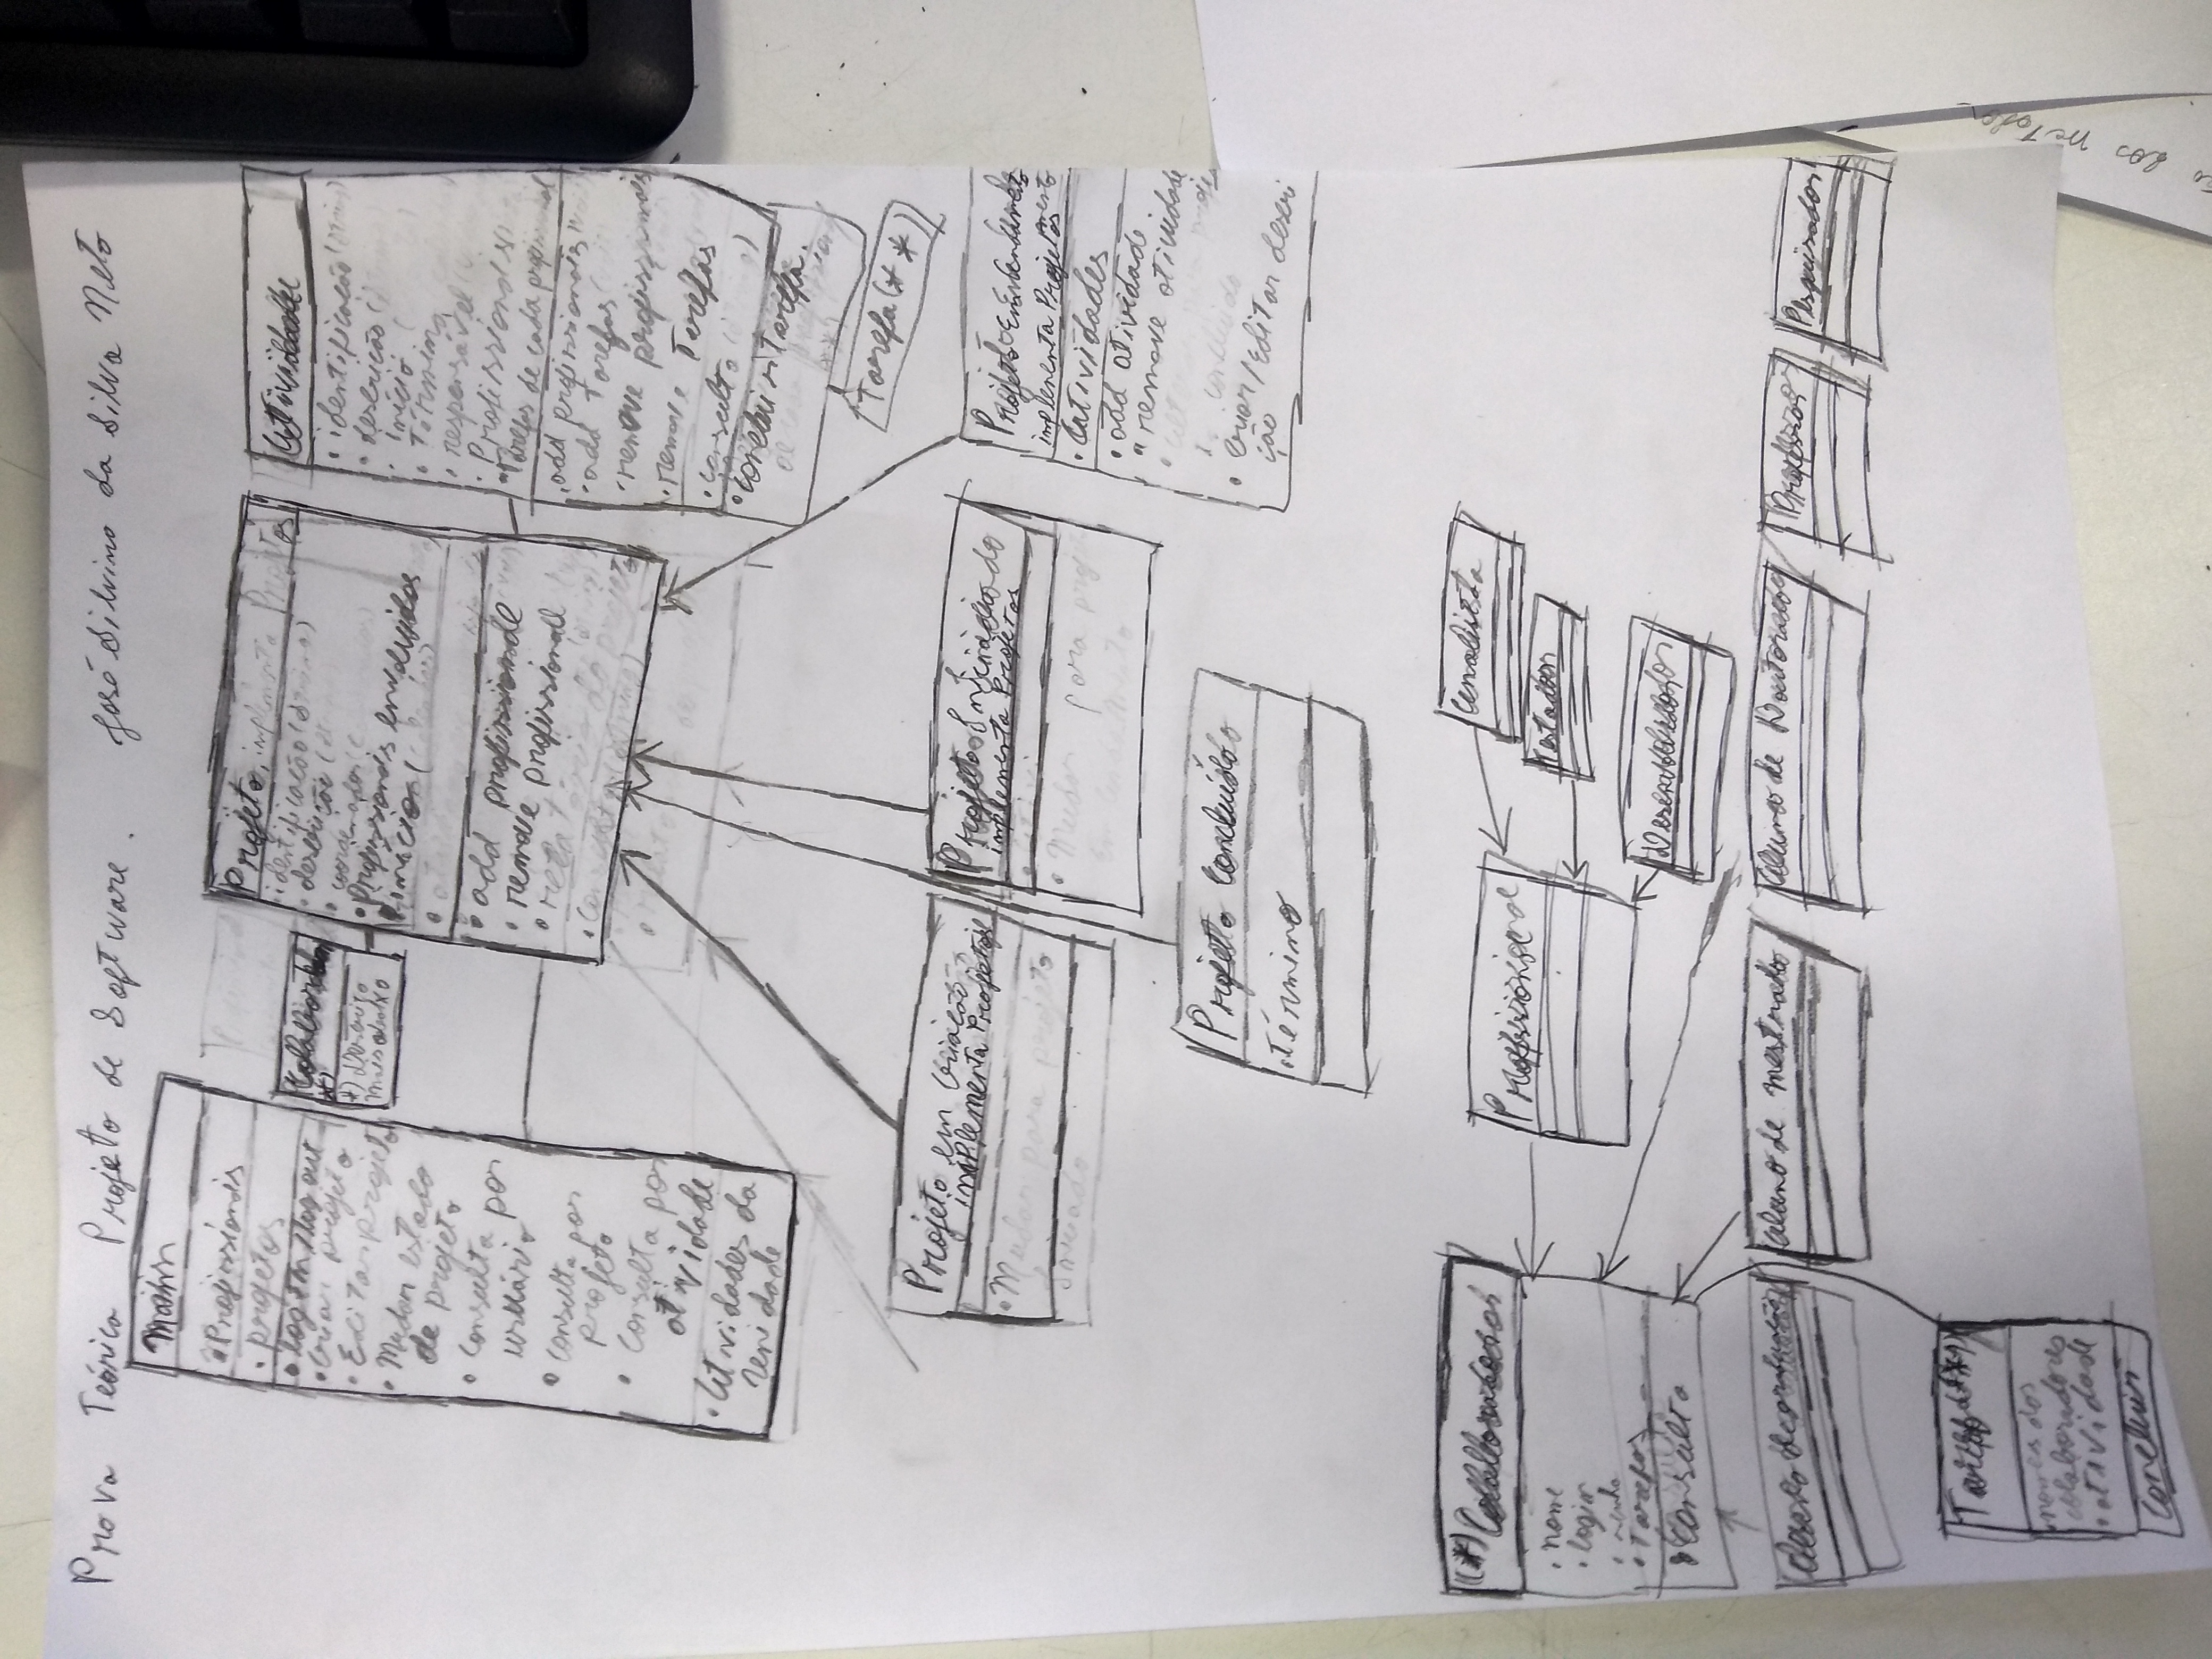 Prova Teórica Projeto de Software. José Silvino da Silva Neto
Main
• Profissionais
• projetos
• login/logout
• Criar projeto
• Editar projeto
• Mudar estado
de projeto
• Consulta por
usuário
• Consulta por
projeto
• Consulta por
atividade
• Atividades da
unidade
Colaborador
(*)
*) Descrição
mais abaixo
Projeto, implementa Projetos
• identificação (String)
• descrição
• coordenador
• Profissionais envolvidos
• início
• add profissional
• remove profissional
• relatório do projeto
• Consulta (String)
Atividade
• identificação (String)
• descrição
• início
• término
• responsável
• Profissionais
• Tarefas de cada profissional
• add profissionais
• add Tarefas
• remove profissionais
• remove Tarefas
• consulta
• Concluir Tarefa.
Tarefa (**)
Projeto em Criação
implementa Projetos
• Mudar para projeto
Iniciado
Projeto Iniciado
implementa Projetos
• Mudar para projeto
Em Andamento
Projeto Em Andamento
implementa Projetos
• Atividades
• add atividade
• remove atividade
concluído
• Criar/Editar descri
ção
Projeto Concluído
• Término
(*) Colaborador
• nome
• login
• senha
• Tarefas
• Consulta
Profissional
Analista
Testador
Desenvolvedor
Aluno de graduação
Aluno de mestrado
Aluno de Doutorado
Professor
Pesquisador
Tarefa (**)
• nomes dos
colaboradores
• atividade
Concluir
dos metodo